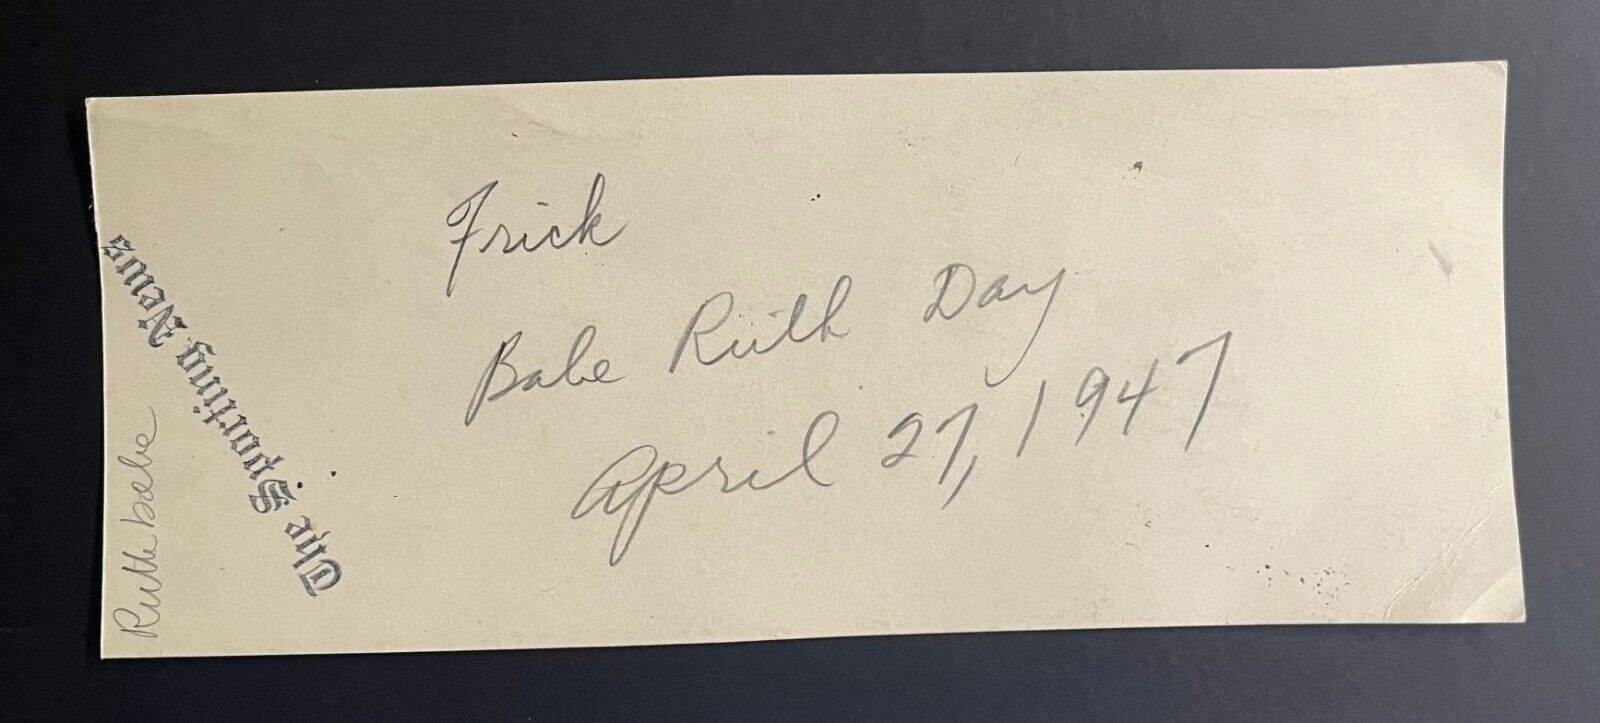 Frick
Babe Ruth Day
April 27, 1947
The Sporting News
Ruth babe